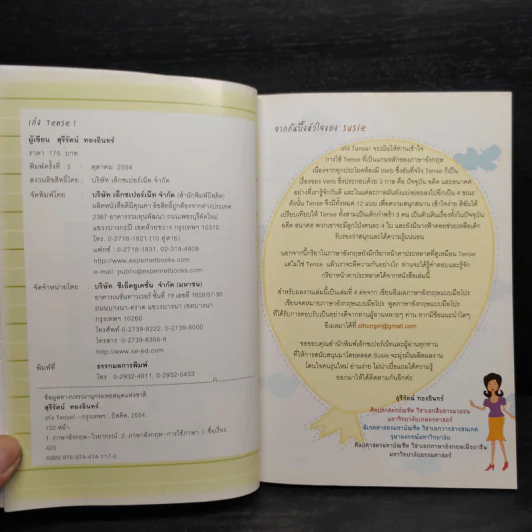 เก่ง Tense !
ผู้เขียน สุรีรัตน์ ทองอินทร์
ราคา 175 บาท
พิมพ์ครั้งที่ 3 : ตุลาคม 2554
สงวนลิขสิทธิ์โดย : บริษัท เอ็กซเปอร์เน็ท จำกัด
จัดพิมพ์โดย : บริษัท เอ็กซเปอร์เน็ท จำกัด (สำนักพิมพ์บิสคิต)
ผลิตหนังสือที่ดีมีคุณค่า ลิขสิทธิ์ถูกต้องจากต่างประเทศ
2387 อาคารรวมทุนพัฒนา ถนนเพชรบุรีตัดใหม่
แขวงบางกะปิ เขตห้วยขวาง กรุงเทพฯ 10310
โทร. 0-2718-1821 (10 คู่สาย)
แฟกซ์ : 0-2718-1831, 02-318-4809
http://www.expernetbooks.com
e-mail: public@expernetbooks.com
จัดจำหน่ายโดย : บริษัท ซีเอ็ดยูเคชั่น จำกัด (มหาชน)
อาคารเนชั่นทาวเวอร์ ชั้นที่ 19 เลขที่ 1858/87-90
ถนนบางนา-ตราด แขวงบางนา เขตบางนา
กรุงเทพฯ 10260
โทรศัพท์ 0-2739-8222, 0-2739-8000
โทรสาร 0-2739-8356-9
http://www.se-ed.com
พิมพ์ที่ : ธรรกมลการพิมพ์
โทร. 0-2932-4911, 0-2932-5433
ข้อมูลทางบรรณานุกรมหอสมุดแห่งชาติ
สุรีรัตน์ ทองอินทร์
เก่ง Tense!--กรุงเทพฯ : บิสคิต, 2554.
132 หน้า.
1. ภาษาอังกฤษ--ไวยากรณ์. 2. ภาษาอังกฤษ--การใช้ภาษา. I. ชื่อเรื่อง.
425
ISBN 978-974-414-117-0
จากก้นบึ้งหัวใจของ Susie
เก่ง Tense! จะเน้นให้ท่านเข้าใจ
การใช้ Tense ที่เป็นแกนหลักของภาษาอังกฤษ
เนื่องจากทุกประโยคต้องมี Verb ซึ่งอันที่จริง Tense ก็เป็น
เรื่องของ Verb ซึ่งประกอบด้วย 3 ภาค คือ ปัจจุบัน อดีต และอนาคต
อย่างที่เรารู้จักกันดี และในแต่ละภาคมันยังแบ่งย่อยลงไปอีกเป็น 4 แขนง
ดังนั้น Tense จึงมีทั้งหมด 12 แบบ เพื่อความสนุกสนาน เข้าใจง่าย ดิฉันได้
เปรียบเทียบให้ Tense ทั้งสามเป็นเด็กกำพร้า 3 คน เป็นตัวเดินเรื่องทั้งในปัจจุบัน
อดีต อนาคต
นอกจากนี้กริยาในภาษาอังกฤษยังมีกริยาหน้าตาประหลาดที่ดูเหมือน Tense
แต่ไม่ใช่ Tense แล้วเราจะตีความกันอย่างไร ท่านจะได้รู้คำตอบและรู้จัก
กริยาหน้าตาประหลาดได้จากหนังสือเล่มนี้
สำหรับผลงานเล่มนี้เป็นเล่มที่ 4 ต่อจาก เขียนอีเมลภาษาอังกฤษแบบมือโปร
เขียนจดหมายภาษาอังกฤษแบบมือโปร พูดภาษาอังกฤษแบบมือโปร
ที่ได้รับการตอบรับเป็นอย่างดีจากท่านผู้อ่านหลายๆ ท่าน หากมีข้อแนะนำใดๆ
อีเมลมาได้ที่ sthongin@gmail.com
ขอขอบคุณสำนักพิมพ์เอ็กซเปอร์เน็ทและผู้อ่านทุกท่าน
ที่ให้การสนับสนุนมาโดยตลอด Susie จะมุ่งมั่นผลิตผลงาน
โดนใจคนรุ่นใหม่ อ่านง่าย ไม่น่าเบื่อแถมได้ความรู้
ออกมาให้ได้ติดตามกันอีกค่ะ
สุรีรัตน์ ทองอินทร์
ศิลปศาสตรบัณฑิต วิชาเอกสื่อสารมวลชน
มหาวิทยาลัยเกษตรศาสตร์
นิเทศศาสตรมหาบัณฑิต วิชาเอกวารสารสนเทศ
จุฬาลงกรณ์มหาวิทยาลัย
ศิลปศาสตรมหาบัณฑิต วิชาเอกภาษาอังกฤษเพื่ออาชีพ
มหาวิทยาลัยธรรมศาสตร์